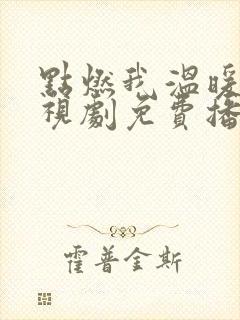 點燃我,溫暖
視劇免費播
霍普金斯